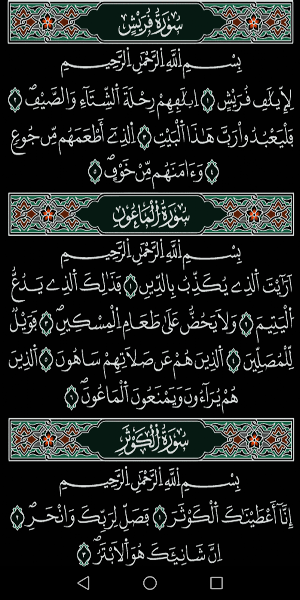 سُورَةُ قُرَيْشٍ
بِسْمِ اللَّهِ الرَّحْمَٰنِ الرَّحِيمِ
لِإِيلَٰفِ قُرَيْشٍ ١ اِۦلَٰفِهِمْ رِحْلَةَ اَلشِّتَآءِ وَالصَّيْفِۖ ٢
فَلْيَعْبُدُواْ رَبَّ هَٰذَا اَلْبَيْتِ ٣ اِلذِےٓ أَطْعَمَهُم مِّن جُوعٍ
٤ وَءَامَنَهُم مِّنْ خَوْفٍۖ ٥
سُورَةُ الْمَاعُونِ
بِسْمِ اللَّهِ الرَّحْمَٰنِ الرَّحِيمِ
أَرَٰٓيْتَ اَلذِے يُكَذِّبُ بِالدِّينِ ١ فَذَٰلِكَ اَلذِے يَدُعُّ
اُلْيَتِيمَ ٢ وَلَا يَحُضُّ عَلَىٰ طَعَامِ اِلْمِسْكِينِۖ ٣ فَوَيْلٌ
لِّلْمُصَلِّينَ ٤ اَلذِينَ هُمْ عَن صَلَاتِهِمْ سَاهُونَ ٥ اَلذِينَ
هُمْ يُرَآءُونَ وَيَمْنَعُونَ اَلْمَاعُونَۖ ٦
سُورَةُ الْكَوْثَرِ
بِسْمِ اللَّهِ الرَّحْمَٰنِ الرَّحِيمِ
إِنَّآ أَعْطَيْنَٰكَ اَلْكَوْثَرَ ١ فَصَلِّ لِرَبِّكَ وَانْحَرِۖ ٢
اِنَّ شَانِئَكَ هُوَ اَلَابْتَرُۖ ٣